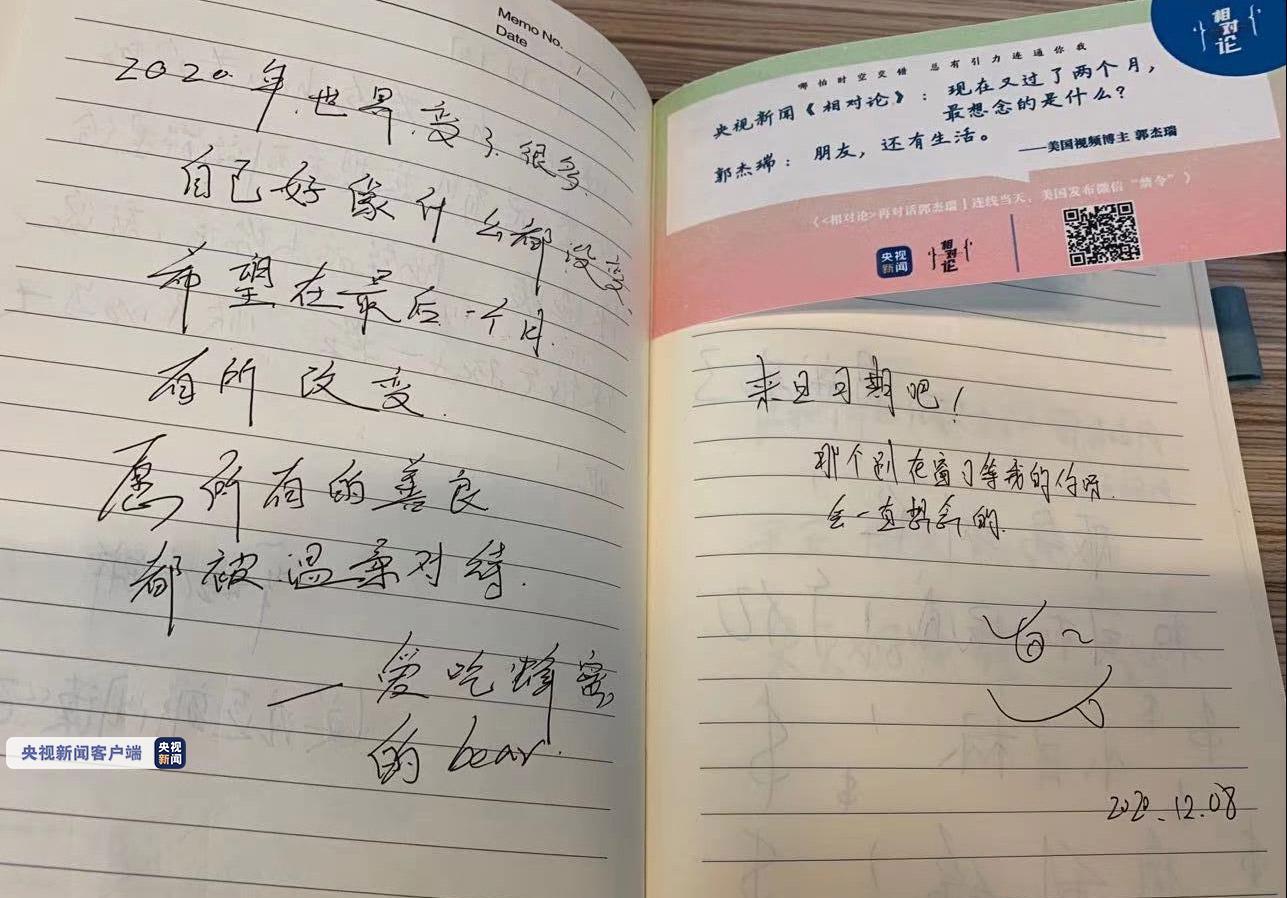 Memo No.
Date
2020年,世界,变了很多,
自己好像什么都没变,
希望在最后一个月.
有所改变.
愿所有的善良
都被温柔对待.
—爱吃蜂蜜
的bear.
央视新闻客户端
央视
新闻
相对论
哪怕时空交错 总有引力连通你我
央视新闻《相对论》：现在又过了两个月，
最想念的是什么？
郭杰瑞：朋友，还有生活。
——美国视频博主 郭杰瑞
《<相对论>再对话郭杰瑞丨连线当天，美国发布微信“禁令”》
央视
新闻
相对论
来日可期吧!
那个 在窗口等我的你
会一直想念的.
2020.12.08